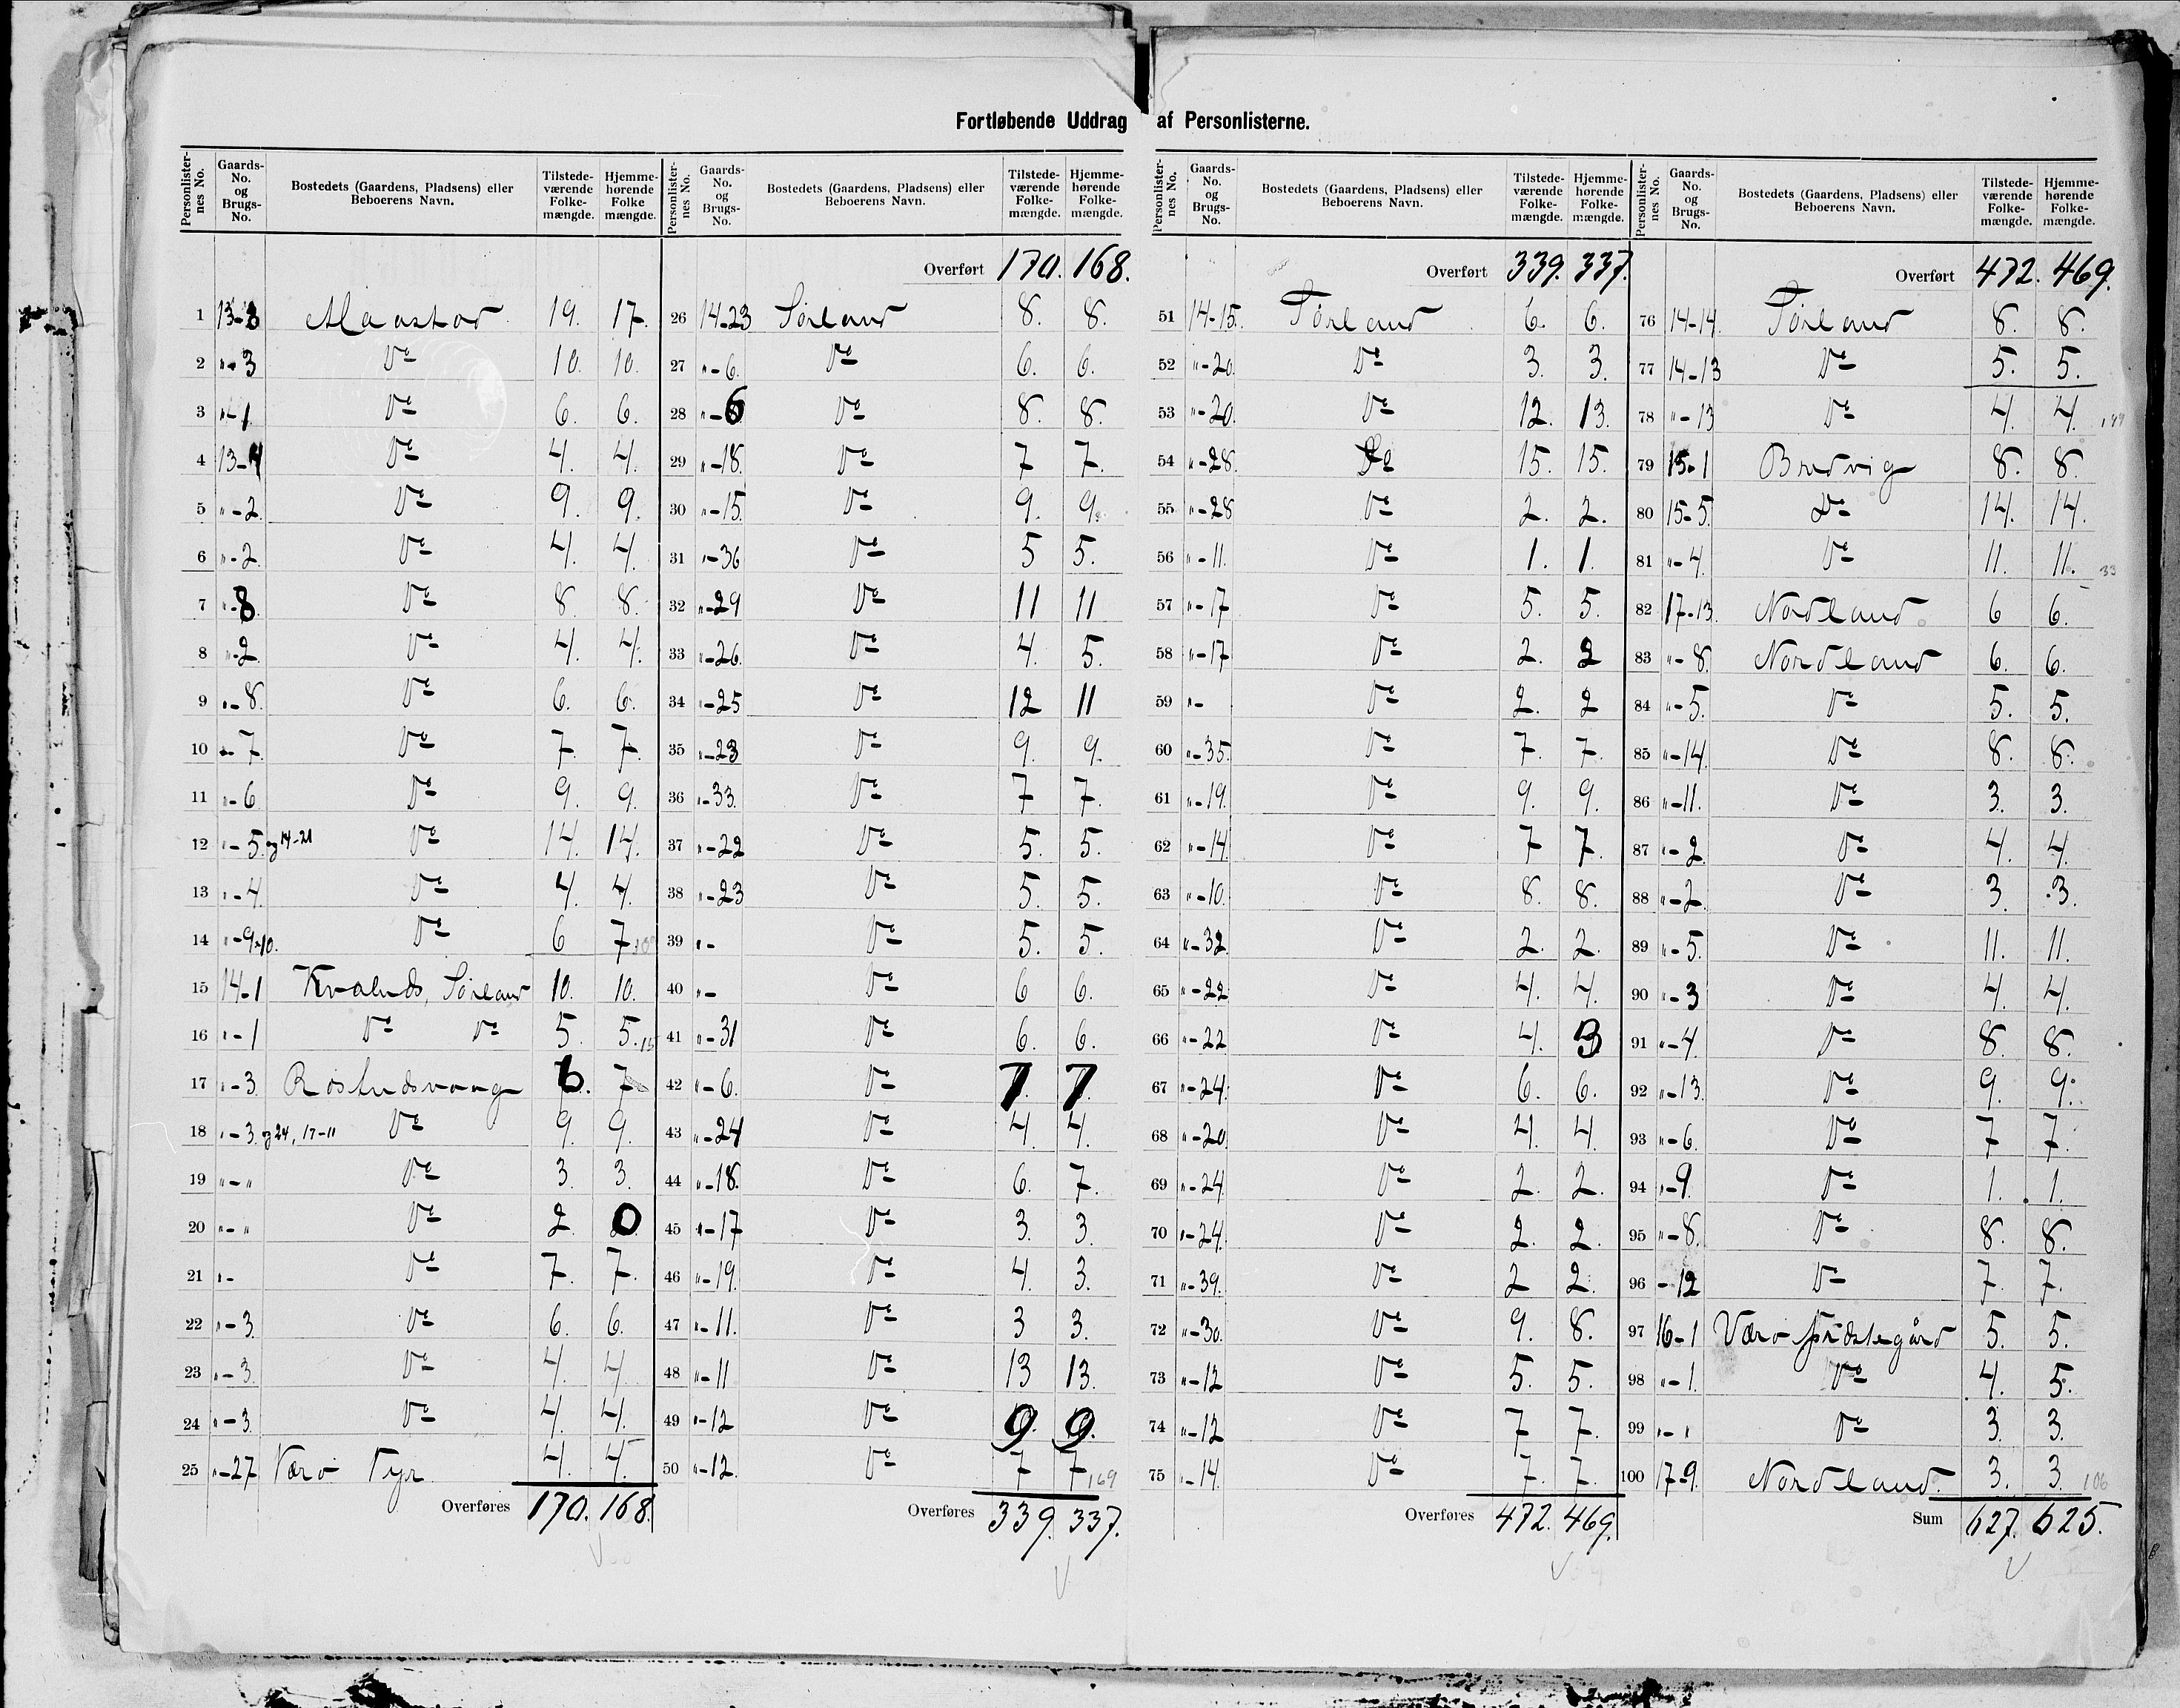 Fortløbende Uddrag af Personlisterne.
Personlister-nes No. Gaards-No. og Brugs-No. Bostedets (Gaardens, Pladsens) eller Beboerens Navn. Tilstede-værende Folke-mængde. Hjemme-hørende Folke mængde.
1 13-8 Maastad 19. 17.
2 "-3 Do 10. 10.
3 "-1 Do 6. 6.
4 13-4 Do 4. 4.
5 "-2 Do 9. 9.
6 "-2 Do 4. 4.
7 "-8 Do 8. 8.
8 "-2 Do 4. 4.
9 "-8. Do 6. 6.
10 "-7. Do 7. 7.
11 "-6 Do 9. 9.
12 "-5. og 14-21 Do 14. 14.
13 "-4. Do 4. 4.
14 "-9-10. Do 6 7.
15 14-1 Kvalnds, Sørland 10. 10.
16 "-1 Do Do 5. 5. 15
17 "-3. Røstndsvaag 6. 7
18 "-3. og 24, 17-11 Do 9. 9.
19 "-" Do 3. 3.
20 "-" Do 2 0
21 "- Do 7. 7.
22 "-3. Do 6. 6.
23 "-3. Do 4. 4
24 "-3 Do 4. 4.
25 "-27 Værø Fyr 4. 4.
Overføres 170. 168.
Personlister-nes No. Gaards-No. og Brugs-No. Bostedets (Gaardens, Pladsens) eller Beboerens Navn. Tilstede-værende Folke-mængde. Hjemme-hørende Folke-mængde.
Overført 170. 168.
26 14-23 Sørland 8. 8.
27 "-6. Do 6. 6.
28 "-6 Do 8. 8.
29 "-18. Do 7 7.
30 "-15. Do 9. 9.
31 "-36 Do 5 5.
32 "-29 Do 11 11
33 "-26. Do 4. 5.
34 "-25 Do 12 11
35 "-23 Do 9. 9.
36 "-33. Do 7 7.
37 "-22 Do 5. 5.
38 "-23 Do 5. 5.
39 "- Do 5. 5.
40 "- Do 6 6.
41 "-31 Do 6. 6.
42 "-6. Do 7. 7.
43 "-24 Do 4. 4.
44 "-18. Do 6. 7.
45 "-17 Do 3. 3.
46 "-19. Do 4. 3.
47 "-11. Do 3 3.
48 "-11 Do 13 13.
49 "-12 Do 9. 9.
50 "-12. Do 7 7 169
Overføres 339. 337.
Personlister-nes No. Gaards-No. og Brugs-No. Bostedets (Gaardens, Pladsens) eller Beboerens Navn. Tilstede-værende Folke-mængde. Hjemme-hørende Folke-mængde.
Overført 339. 337.
51 14-15. Sørland 6. 6.
52 "-20. Do 3. 3.
53 "-20. Do 12. 13.
54 "-28. Do 15. 15.
55 "-28 Do 2. 2.
56 "-11. Do 1. 1.
57 "-17 Do 5. 5.
58 "-17 Do 2. 2
59 "- Do 2. 2
60 "-35. Do 7. 7.
61 "-19. Do 9. 9.
62 "-14. Do 7 7.
63 "-10. Do 8. 8.
64 "-32. Do 2. 2.
65 "-22 Do 4. 4.
66 "-22. Do 4. 3
67 "-24. Do 6. 6.
68 "-20. Do 4. 4.
69 "-24. Do 2. 2.
70 "-24. Do 2. 2.
71 "-39. Do 2 2.
72 "-30. Do 9. 8.
73 "-12 Do 5. 5.
74 "-12 Do 7 7.
75 "-14. Do 7. 7.
Overføres 472. 469.
Personlister-nes No. Gaards-No. og Brugs-No. Bostedets (Gaardens, Pladsens) eller Beboerens Navn. Tilstede-værende Folke-mængde. Hjemme-hørende Folke-mængde.
Overført 472. 469.
76 14-14. Sørland 8. 8.
77 14-13 Do 5. 5.
78 "-13 Do 4. 4.
79 15-1 Bredvig 8. 8.
80 15-5. Do 14. 14.
81 "-4. Do 11. 11. 33
82 17-13. Nordland 6 6.
83 "-8. Nordland 6. 6.
84 "-5. Do 5. 5.
85 "-14. Do 8. 8.
86 "-11. Do 3. 3.
87 "-2. Do 4. 4.
88 "-2. Do 3. 3.
89 "-5. Do 11. 11.
90 "-3 Do 4. 4.
91 "-4. Do 8. 8.
92 "-13. Do 9. 9.
93 "-6. Do 7 7.
94 "-9. Do 1. 1.
95 "-8. Do 8. 8.
96 -12 Do 7. 7.
97 16-1 Værø Præstegård 5. 5.
98 "-1. Do 4. 5.
99 "-" Do 3. 3.
100 17-9. Nordland. 3. 3 106
Sum 627. 625.